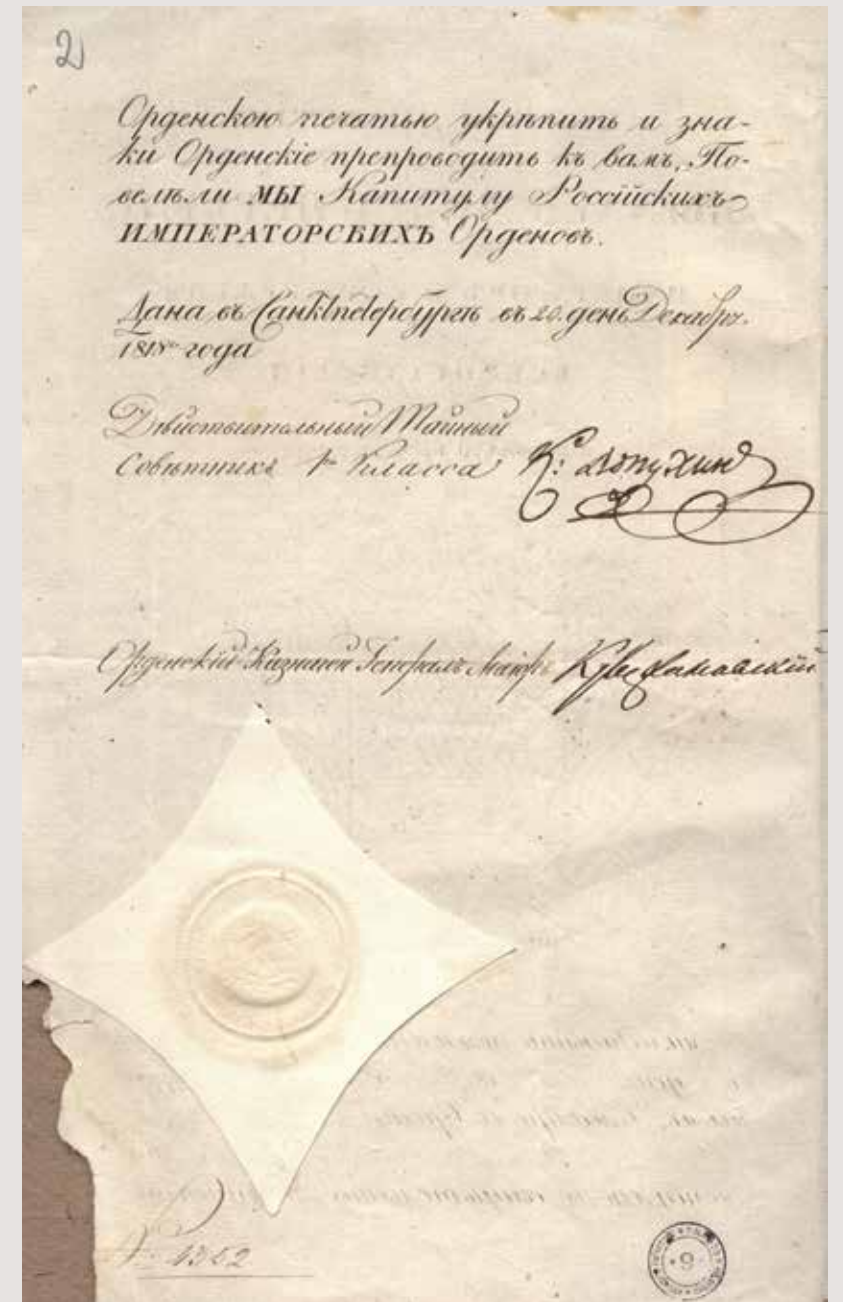 2
Орденскою печатью укрѣпить и зна-
ки Орденскіе препроводить къ вамъ, По-
велѣли МЫ Капитулу Россійскихъ
ИМПЕРАТОРСКИХЪ Орденовъ.
Дана въ Санктпетербургѣ въ 20. день Декабря.
года
Дѣйствительный Тайный
Совѣтникъ 1 Класса К: Лопухинъ
Орденскій Казначей Генералъ Маіоръ
4352
9